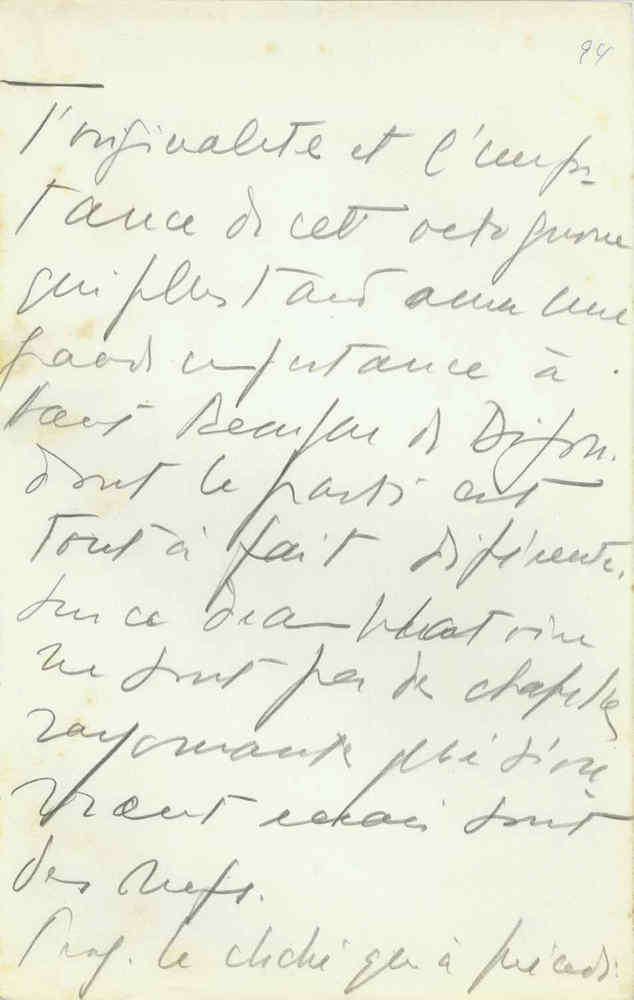 94
l'originalité et l'impor-
tance de cet octogone
qui plus tard aura une
grande importance à
tout de Dijon.
dont le parti est
tout à fait différente.
Sur ce déambulatoire
ne sont pas de chapelles
rayonnantes qui s'ou-
vrent mais sont
des nefs.
Proj. le cliché qui a précédé